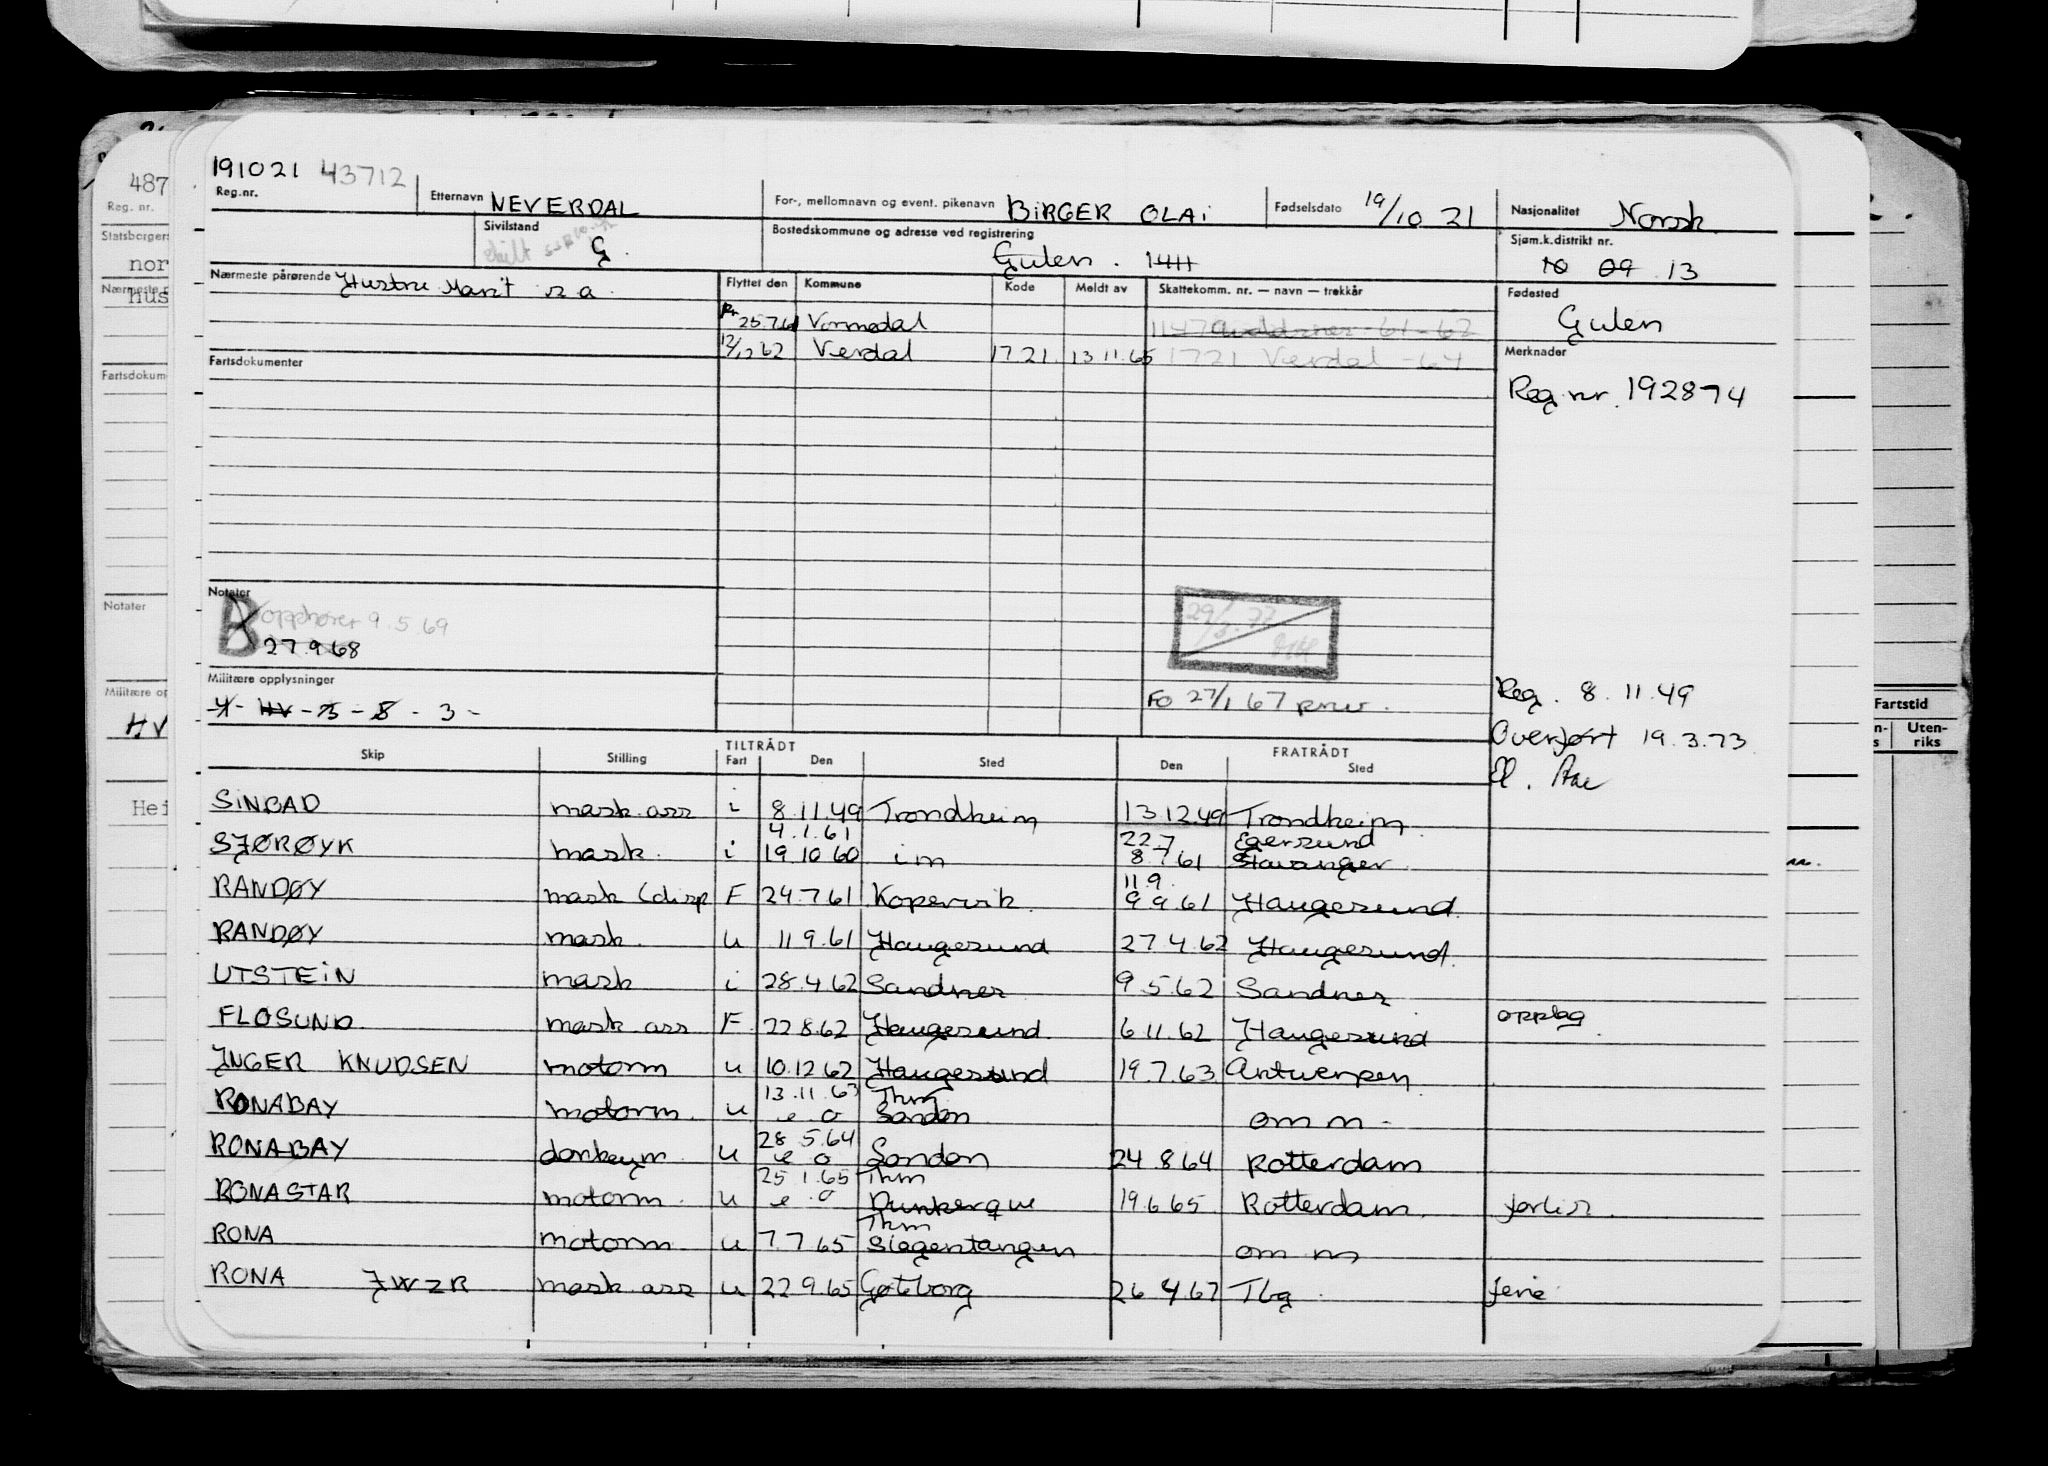 191021 43712
Reg.nr.
Etternavn NEVERDAL
For-, mellomnavn og event. pikenavn BiRGER OLAi
Fødselsdato 19/10 21
Nasjonalitet Norsk
Sivilstand
skilt
G.
Bostedskommune og adresse ved registrering
Gulen. 1411
Sjøm.k.distrikt nr.
10 09 13
Nærmeste pårørende Hustru Marit s a
Flyttet den Kommune Kode Meldt av Skattekomm. nr. — navn — trekkår
25.7.61 Vormedal
12/12 62 Verdal 1721 13.11.65 1721 Verdal -64
Fødested
Gulen
Merknader
Reg nr. 192874
Fartsdokumenter
Notater
B opphører 9.5.69
27.9.68
29/3.77
Militære opplysninger
-4- HV -5-8-3-
Fo 27/1 67
Reg. 8.11.49
Overført 19.3.73
Skip Stilling TILTRÅDT Fart Den Sted FRATRÅDT Den Sted
SiNBAD mask.ass i 8.11.49 Trondheim 13.12.49 Trondheim
4.1.61 22.7 Egersund
SJØRØYK mask. i 19.10.60 im 8.7.61 Stavanger
11.9.
RANDØY mask (disp F 24.7.61 Kopervik 9.9.61 Haugesund
RANDØY mask. u 11.9.61 Haugesund 27.4.62 Haugesund
UTSTEiN mask i 28.4.62 Sandnes 9.5.62 Sandnes
FLØSUND mask ass F 22.8.62 Haugesund 6.11.62 Haugesund opplag
INGER KNUDSEN motorm u 10.12.62 Haugesund 19.7.63 Antwerpen
13.11.63 Thm
RONABAY motorm. u e o London om m.
28.5.64
RONABAY donkeym. u e o London 24.8.64 Rotterdam
25.1.65 Thm
RONASTAR motorm. u e o Dunkerque 19.6.65 Rotterdam forlis.
Thm
RONA motorm u 7.7.65 Slagentangen om m
RONA JWZR mask.ass u 22.9.65 Gøtborg 26.4.67 Tbg ferie
487
Reg. nr.
Statsborgers
nor
Nærmeste
hus
Fartsdokum
Notater
Militære op
HV
Hei
Fartstid
Uten-
riks